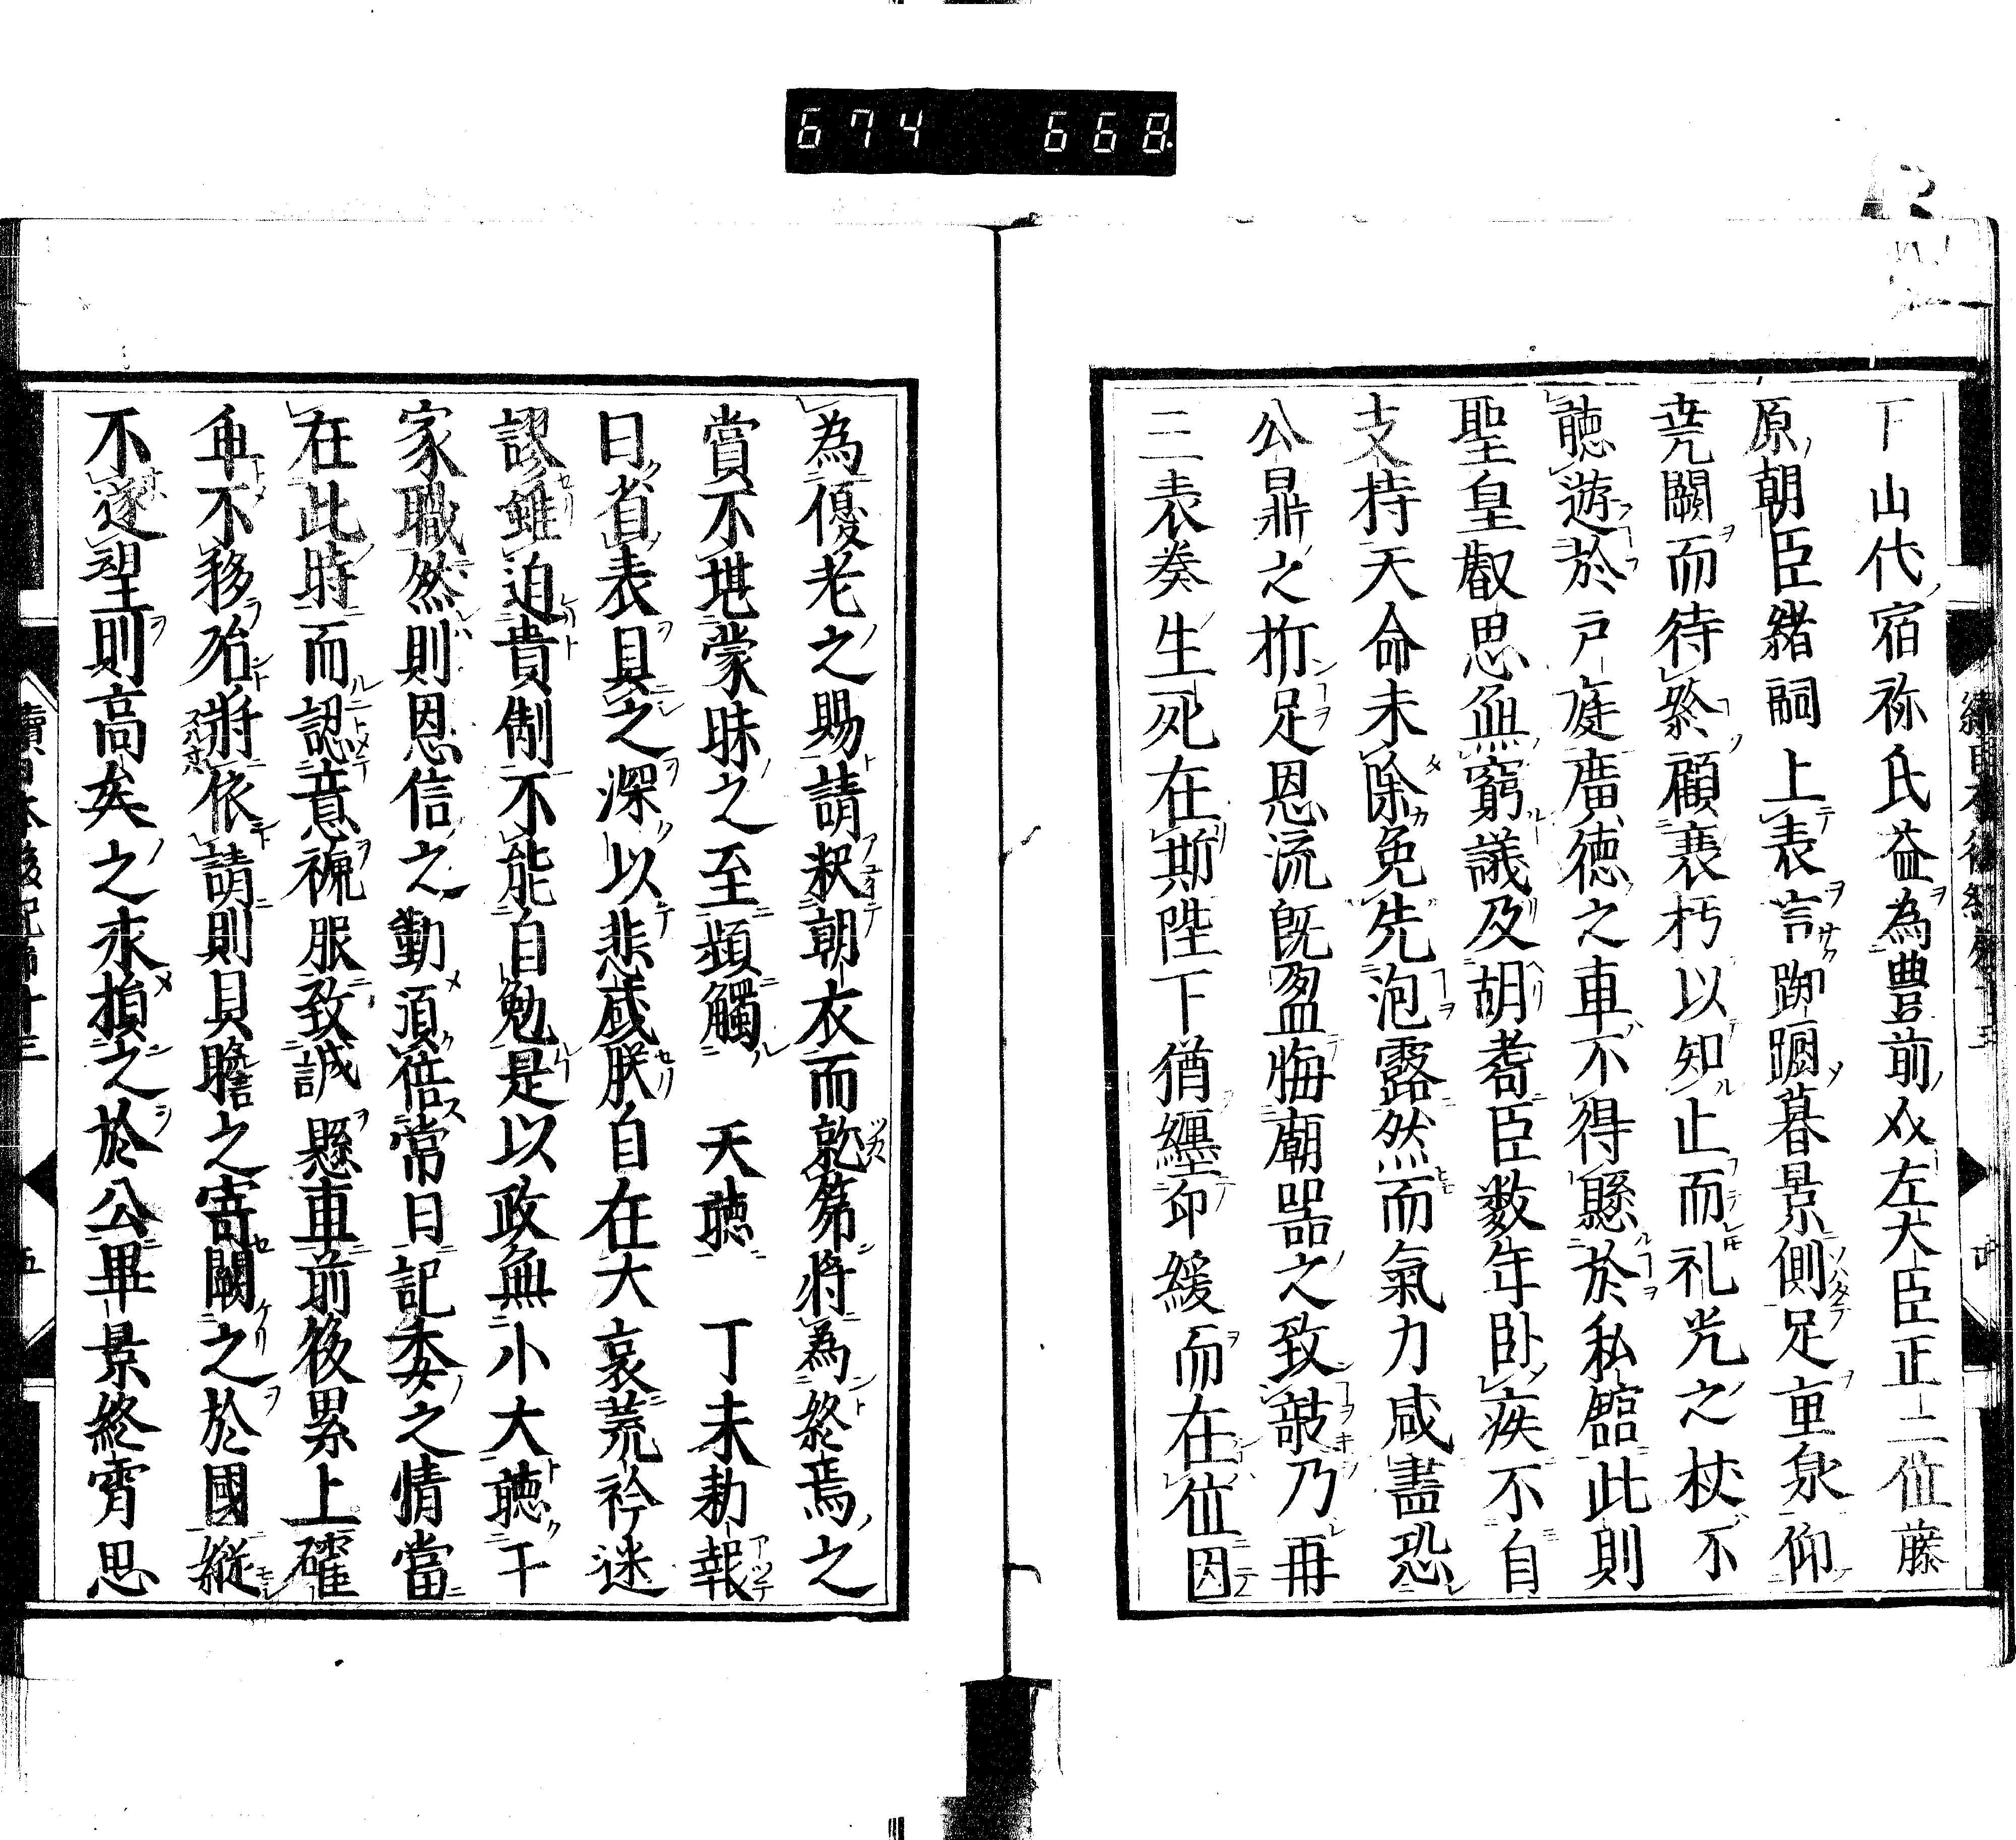 674 668
下山代宿祢氏益為豊前守左大臣正二位藤
原朝臣緒嗣上表言跼蹐暮景側足重泉仰
尭闕而待終顧衰朽以知止而礼光之杖不
聴遊於戸庭廣徳之車不得懸於私舘此則
聖皇叡思無窮議及胡耉臣数年卧疾不自
支持天命未除免先泡露然而氣力咸盡恐
公鼎之折足恩流既盈悔廟器之致欹乃再
三表奏生死在斯陛下猶纏印緩而在位因
為優老之賜請釈朝衣而就第将為終焉之
賞不堪蒙昧之至頻觸 天聴 丁未勅報
曰省表具之深以悲感朕自在大哀荒衿迷
謬雖迫貴制不能自勉是以政無小大聴于
家職然則恩信之勤須倍常日記委之情當
在此時而認意褫服致誠懸車前後累上確
乎不移殆将依請則具瞻之寄闕之於國縦
不遂望則高矣之求損之於公畢景終霄思
續日本後紀巻十三 五